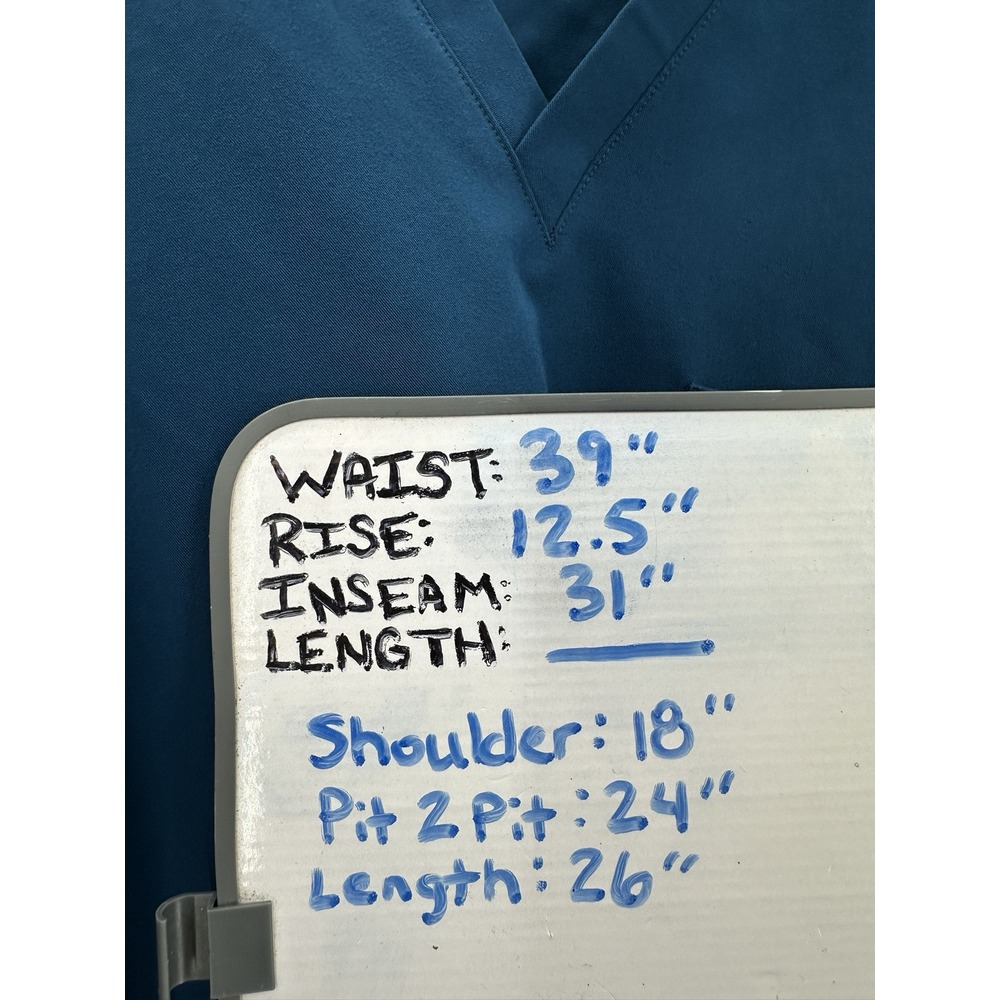 WAIST: 39"
RISE: 12.5"
INSEAM: 31"
LENGTH: —
Shoulder: 18"
Pit 2 Pit: 24"
Length: 26"